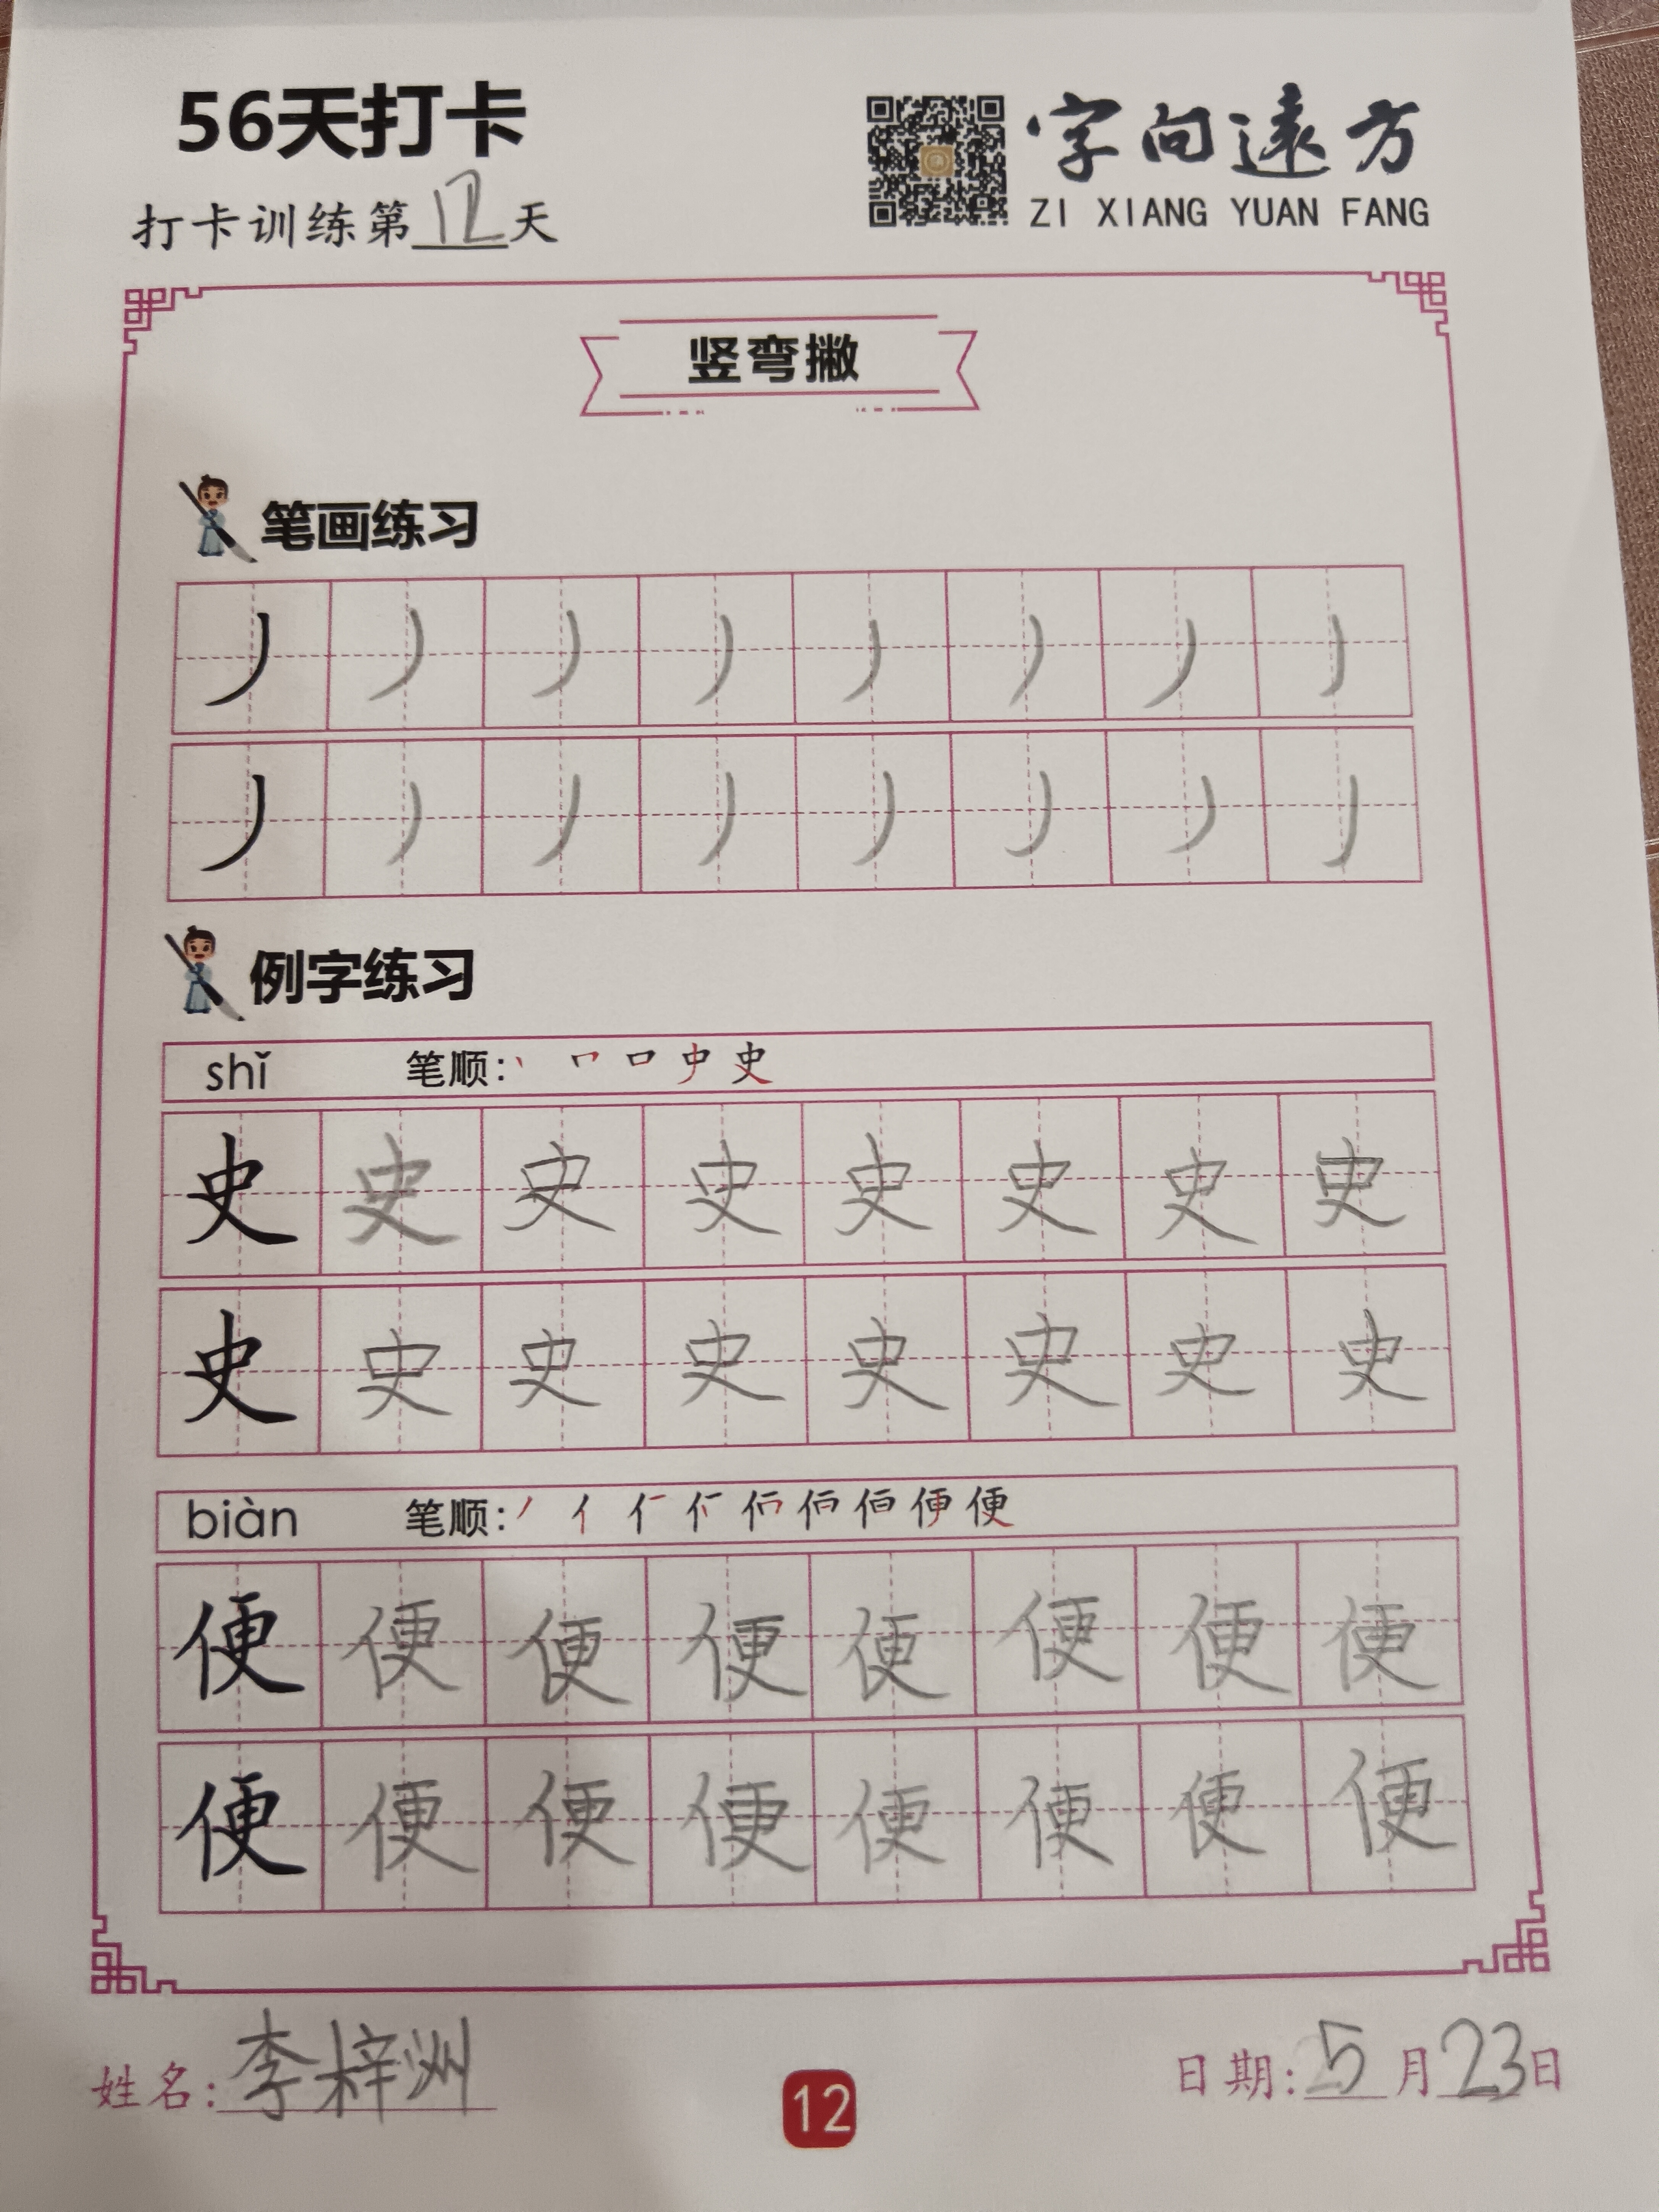 56天打卡
字向遠方
ZI XIANG YUAN FANG
打卡训练第12天
竖弯撇
笔画练习
丿 丿 丿 丿 丿 丿 丿 丿
丿 丿 丿 丿 丿 丿 丿 丿
例字练习
shǐ 笔顺: 史
史 史 史 史 史 史 史 史
史 史 史 史 史 史 史 史
biàn 笔顺: 便
便 便 便 便 便 便 便 便
便 便 便 便 便 便 便 便
姓名:李梓洲
12
日期:5月23日